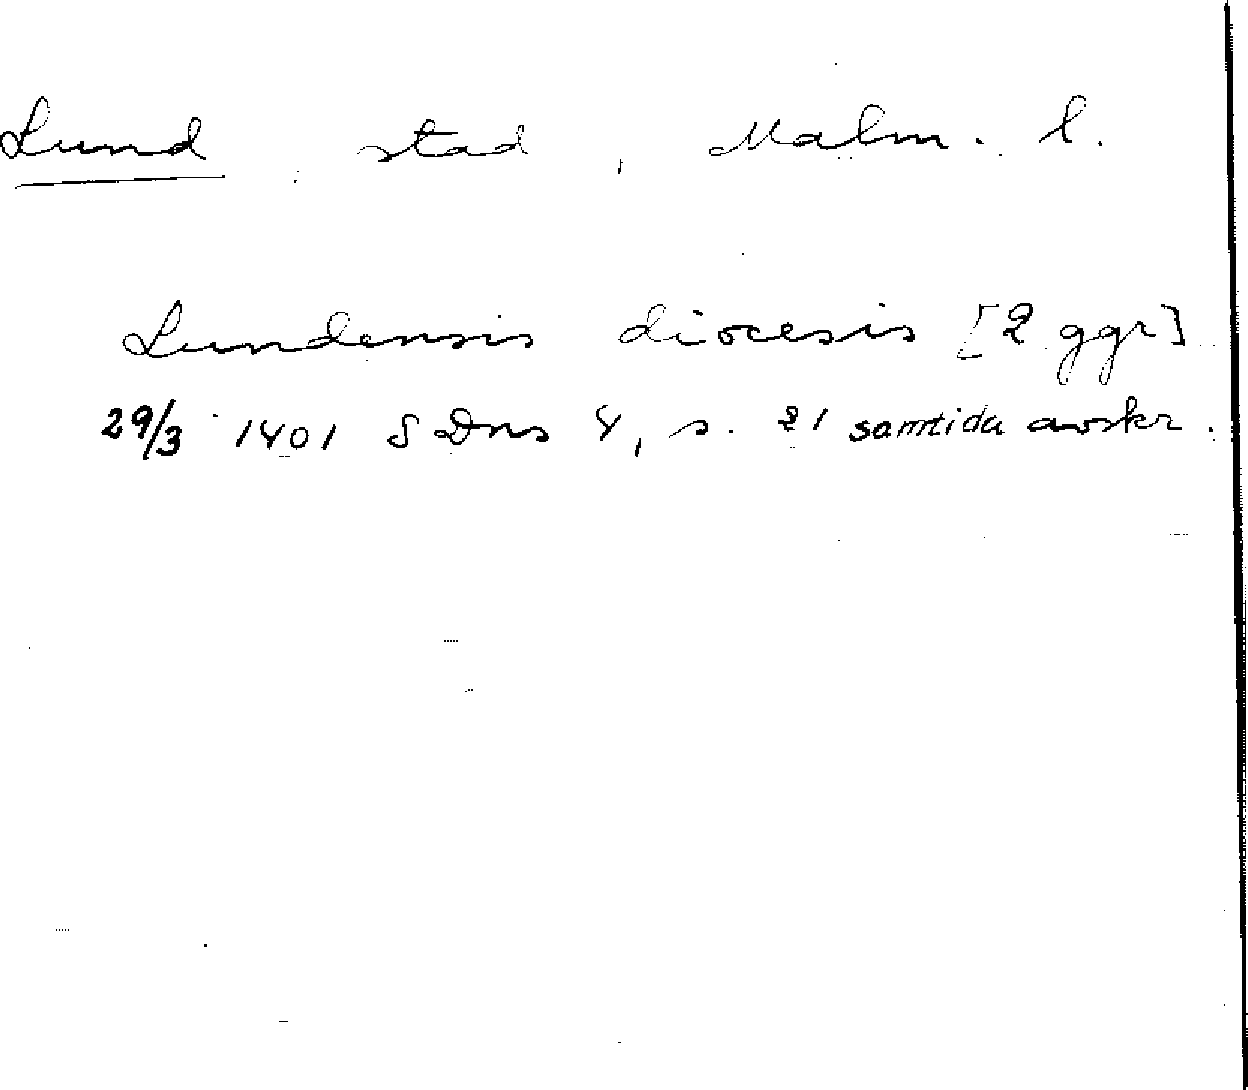 Lund stad, Malm. l.
Lundensis diocesis [2 ggr]
29/3 1401 SDns 4, s. 21 samtida avskr.